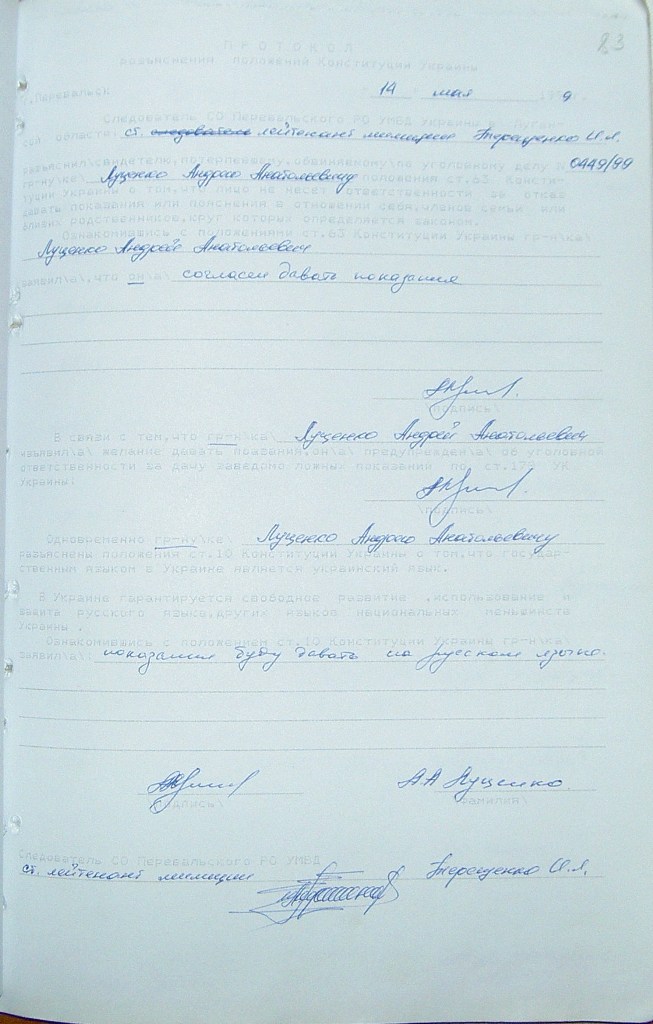 83
ПРОТОКОЛ
разъяснения положений Конституции Украины
г.Перевальск 14 мая 9
Следователь СО Перевальского РО УМВД Украины в Луган-
ской области ст. следователь лейтенант милиции Терещенко И.Я.
разъяснил\свидетелю,потерпевшему,обвиняемому\по уголовному делу № 0449/99
гр-ну\ке\ Луценко Андрею Анатольевичу положения ст.63 Консти-
туции Украины о том,что лицо не несет ответственности за отказ
давать показания или пояснения в отношении себя,членов семьи или
близких родственников,круг которых определяется законом.
Ознакомившись с положениями ст.63 Конституции Украины гр-н\ка\
Луценко Андрей Анатольевич
заявил\а\,что он\а\ согласен давать показания
\подпись\
В связи с тем,что гр-н\ка\ Луценко Андрей Анатольевич
изъявил\а\ желание давать показания,он\а\ предупрежден\а\ об уголовной
ответственности за дачу заведомо ложных показаний по ст.178 УК
Украины:
\подпись\
Одновременно гр-ну\ке\ Луценко Андрею Анатольевичу
разъяснены положения ст.10 Конституции Украины о том,что государ-
ственным языком в Украине является украинский язык.
В Украине гарантируется свободное развитие ,использование и
защита русского языка,других языков национальных меньшинств
Украины .
Ознакомившись с положением ст.10 Конституции Украины гр-н\ка\
заявил\а\: показания буду давать на русском языке.
А А Луценко.
\подпись\ фамилия\
Следователь СО Перевальского РО УМВД
ст. лейтенант милиции Терещенко И.Я.